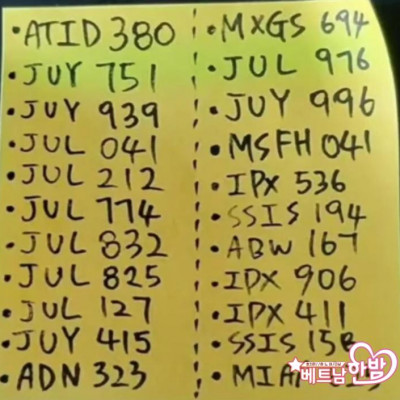 • ATID 380
• JUY 751
• JUY 939
• JUL 041
• JUL 212
• JUL 774
• JUL 832
• JUL 825
• JUL 127
• JUY 415
• ADN 323
• MXGS 694
• JUL 976
• JUY 996
• MSFH 041
• IPX 536
• SSIS 194
• ABW 167
• IPX 906
• IPX 411
• SSIS 158
베트남한밤